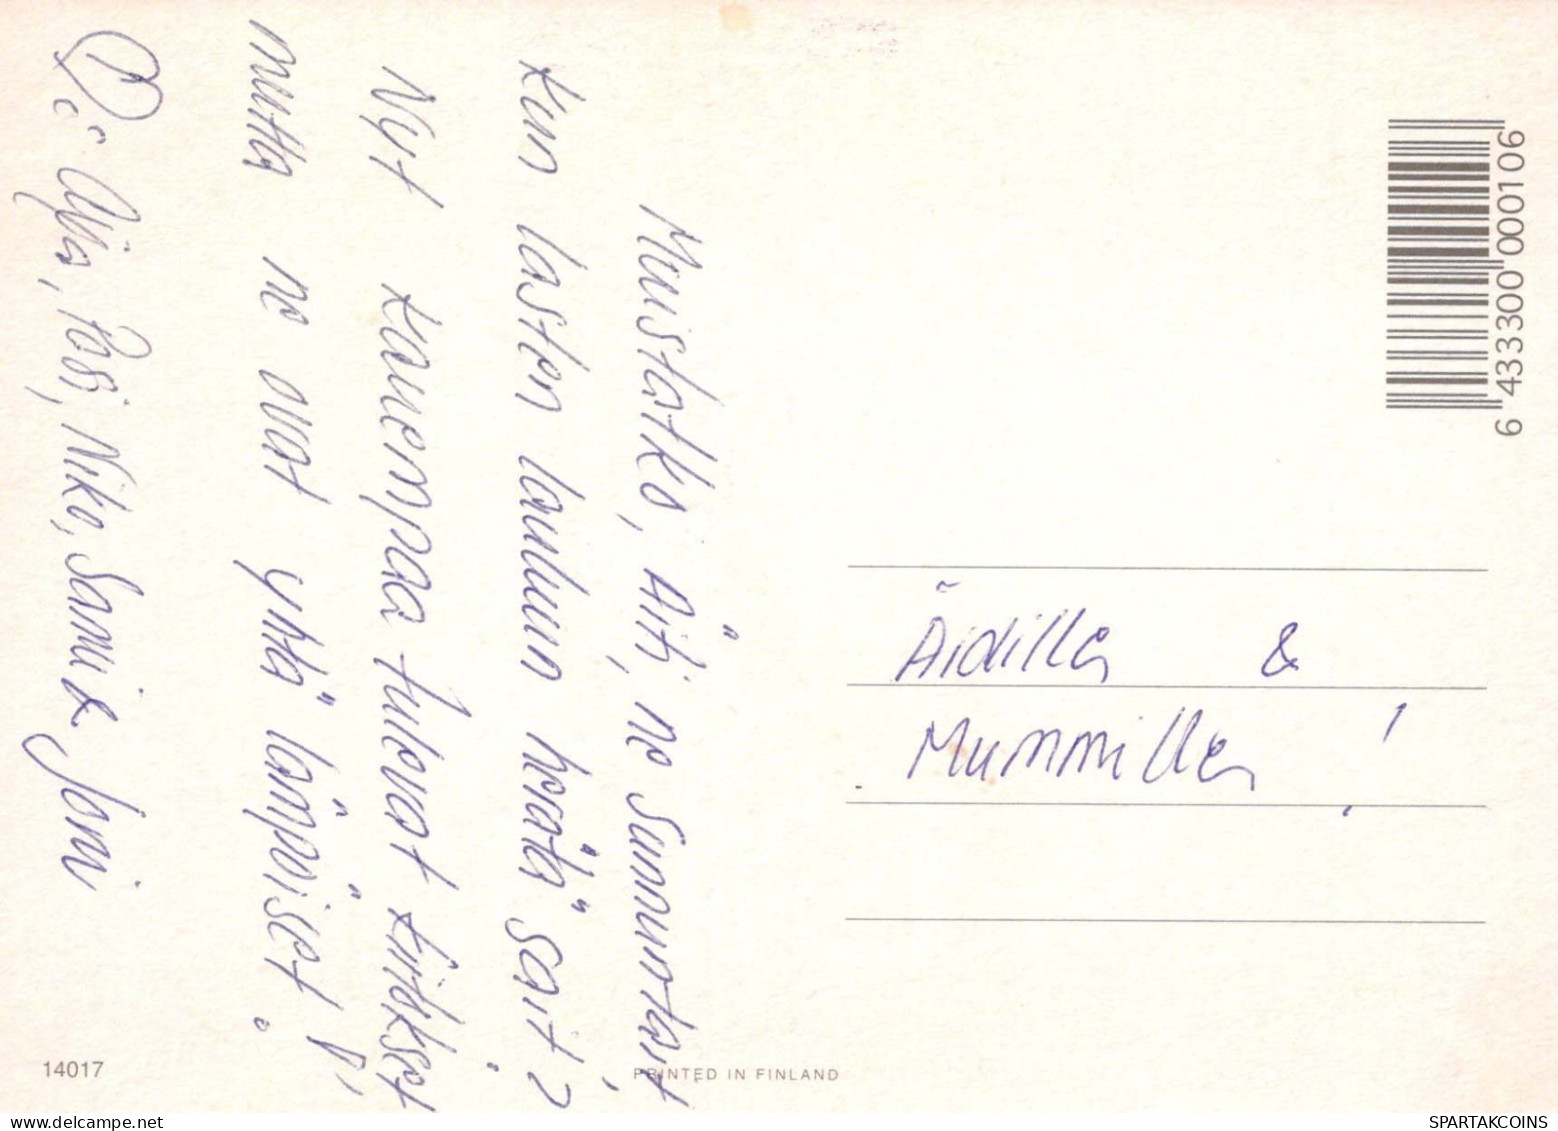 Muistatko, Äiti, ne sunnuntait,
kun lasten laulun herätä sait?
Nyt kauempaa tulevat kiitokset
mutta ne ovat yhtä lämpöiset!
Äidille &
Mummille!
6 433300 000106
14017
PRINTED IN FINLAND
Pasi, Niko, Sami & Joni
SPARTAKCOINS